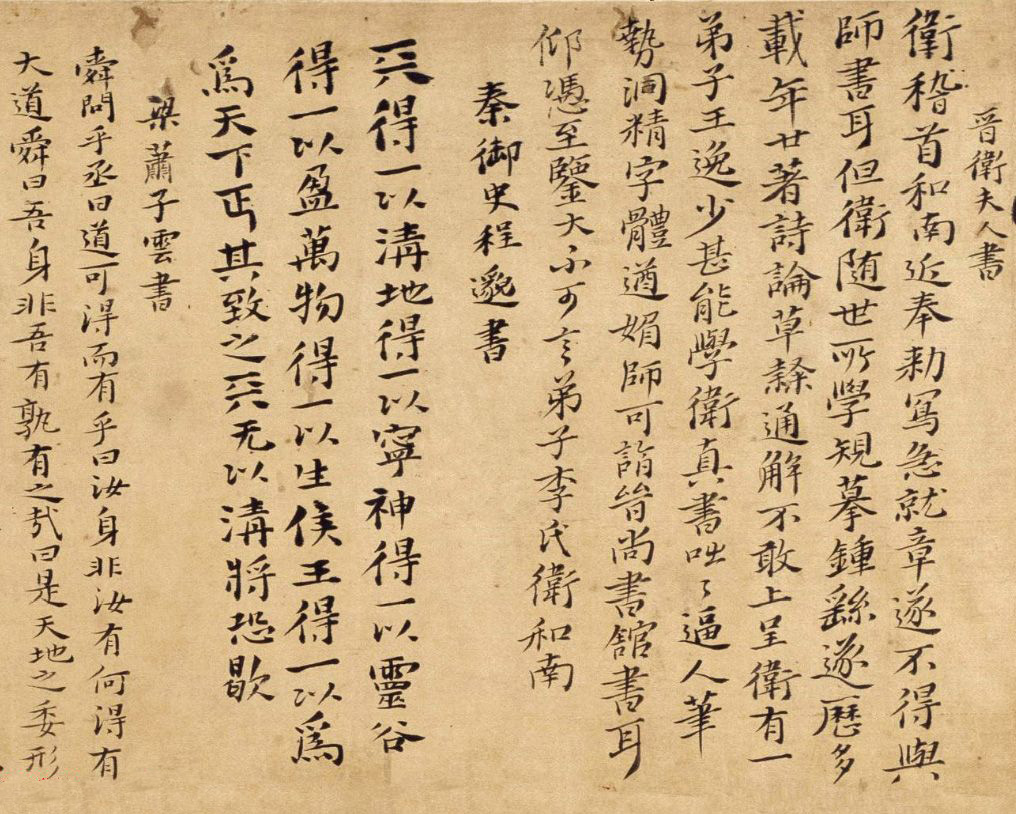 晉衛夫人書
衛稽首和南近奉勅寫急就章遂不得與
師書耳但衛随世所學規摹鍾繇遂歷多
載年廿著詩論草隸通解不敢上呈衛有一
弟子王逸少甚能學衛真書咄〻逼人筆
勢洞精字體遒媚師可詣晉尚書館書耳
仰憑至鑒大不可言弟子李氏衛和南
秦御史程邈書
天得一以清地得一以寧神得一以靈谷
得一以盈萬物得一以生侯王得一以為
為天下正其致之天无以清將恐歇
梁蕭子雲書
舜問乎丞曰道可得而有乎曰汝身非汝有何得有
大道舜曰吾身非吾有孰有之哉曰是天地之委形